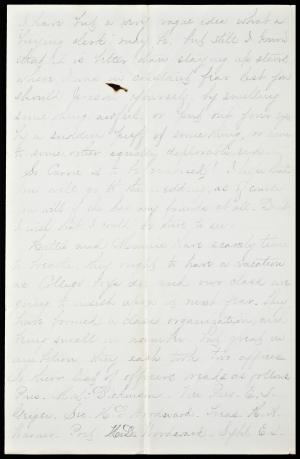 I have but a very vague idea what a
buying clerk may be, but still I know
that it is better than staying up stairs
where I was in constant fear lest you
should poison yourself by smelling
something awful, or put out your eyes
by a sudden puff of something, or have
to some other equally deplorable end.
So Carrie is to be married! I hope that
you will go to the wedding, as of course
you will if she has any friends at all. Don't
I wish that I could be there to see.
Hattie and Minnie have scarcely time
to breathe, they ought to have a vacation
as College boys do and our class are
going to insist upon it next year. They
have formed a class organization, and
being small in number but great in
ambition they each took two offices
so their list of officers reads as follows
Pres. M. L. Dickinson. Vice Pres. E. L.
Geiger. Sec. H. D. Woodward. Treas. H. N.
Warner. Poet H. D. Woodward. Sybil E. L.